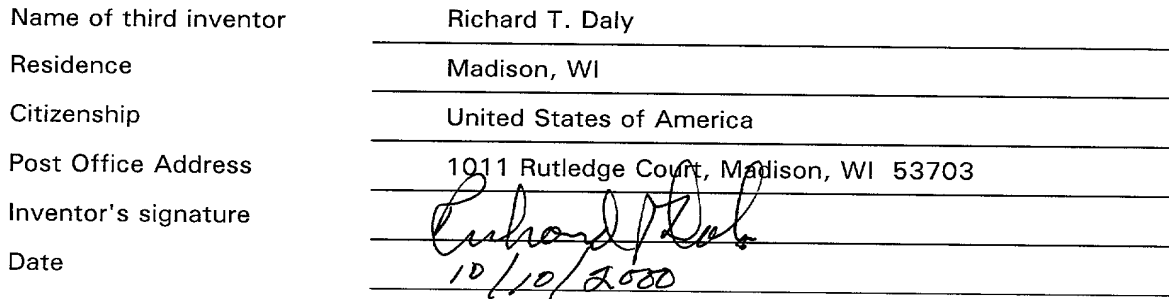 Name of third inventor Richard T. Daly
Residence Madison, WI
Citizenship United States of America
Post Office Address 1011 Rutledge Court, Madison, WI 53703
Inventor's signature Richard T Daly
Date 10/10/2000